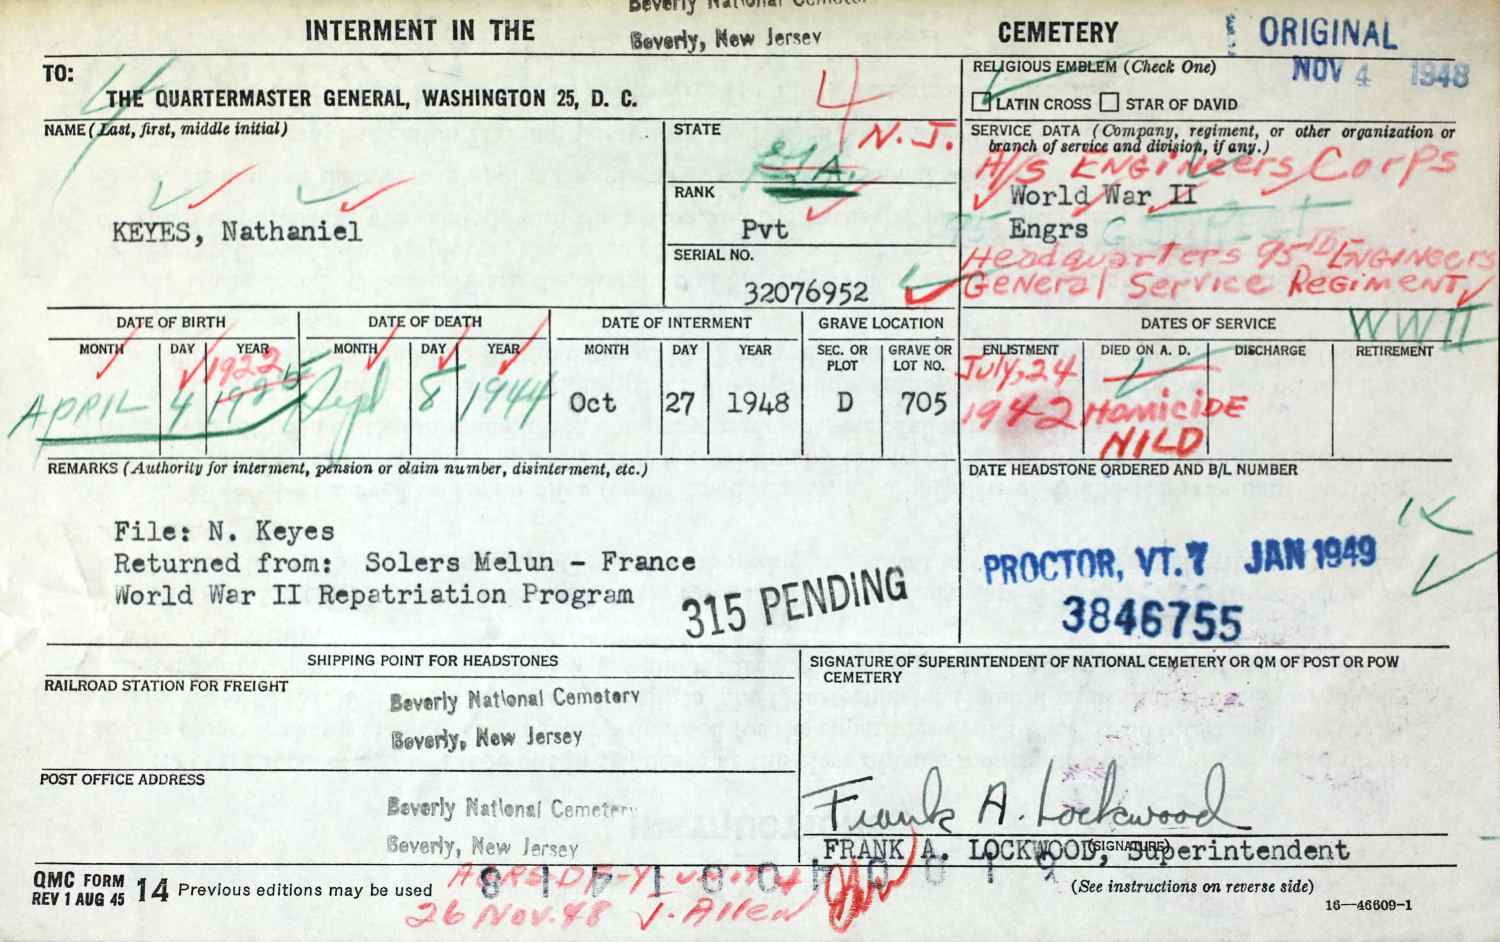 Beverly National Cemetery
INTERMENT IN THE Beverly, New Jersey CEMETERY
ORIGINAL
NOV 4 1948
TO:
THE QUARTERMASTER GENERAL, WASHINGTON 25, D. C.
4
RELIGIOUS EMBLEM (Check One)
LATIN CROSS STAR OF DAVID
NAME (Last, first, middle initial)
KEYES, Nathaniel
STATE
N.J.
RANK
Pvt
SERIAL NO.
32076952
SERVICE DATA (Company, regiment, or other organization or
branch of service and division, if any.)
H/S ENGINeers Corps
World War II
Engrs
Headquarters 95th ENGINEERS
General Service RegimENT
WW II
DATE OF BIRTH
MONTH DAY YEAR
1922
APRIL 4 1925
DATE OF DEATH
MONTH DAY YEAR
Sept 8 1944
DATE OF INTERMENT
MONTH DAY YEAR
Oct 27 1948
GRAVE LOCATION
SEC. OR PLOT
GRAVE OR LOT NO.
D 705
DATES OF SERVICE
ENLISTMENT DIED ON A. D. DISCHARGE RETIREMENT
July, 24
1942 HomiciDE
NILD
REMARKS (Authority for interment, pension or claim number, disinterment, etc.)
File: N. Keyes
Returned from: Solers Melun - France
World War II Repatriation Program
315 PENDING
DATE HEADSTONE ORDERED AND B/L NUMBER
PROCTOR, VT. 7 JAN 1949
3846755
K
SHIPPING POINT FOR HEADSTONES
RAILROAD STATION FOR FREIGHT
Beverly National Cemetery
Beverly, New Jersey
POST OFFICE ADDRESS
Beverly National Cemetery
Beverly, New Jersey
SIGNATURE OF SUPERINTENDENT OF NATIONAL CEMETERY OR QM OF POST OR POW
CEMETERY
Frank A. Lockwood
FRANK A. LOCKWOOD, Superintendent
(SIGNATURE)
QMC FORM
REV 1 AUG 45 14 Previous editions may be used
26 Nov. 48 J. Allen
(See instructions on reverse side)
16—46609-1